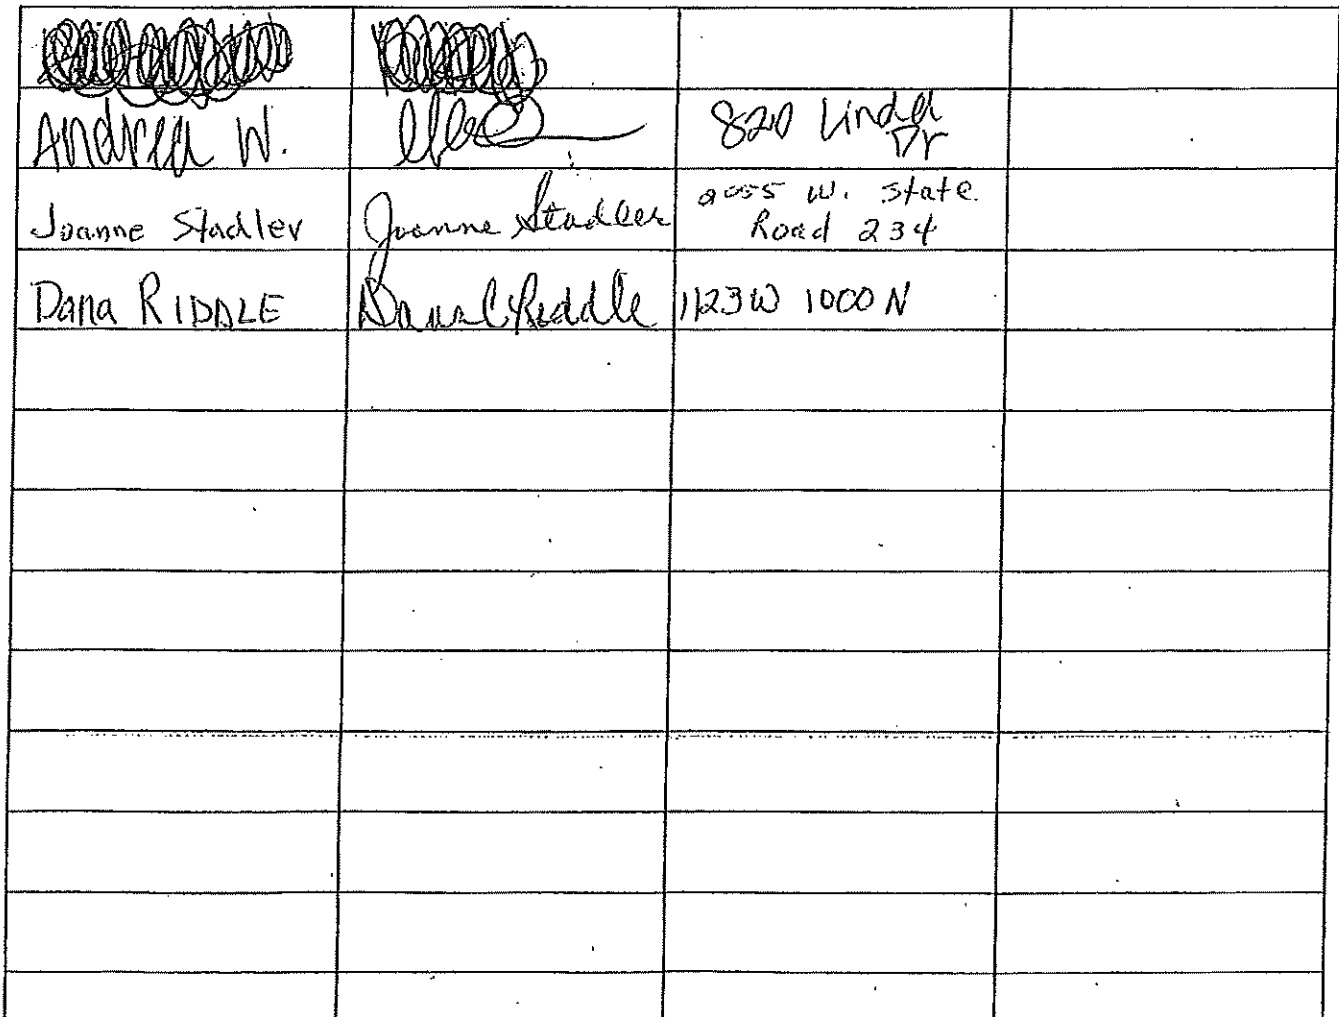 Andrea W. 820 Linda
Dr
Joanne Stadler Joanne Stadler W. State
Road 234
Dana RIDDLE Dana C Riddle 1123 W 1000 N